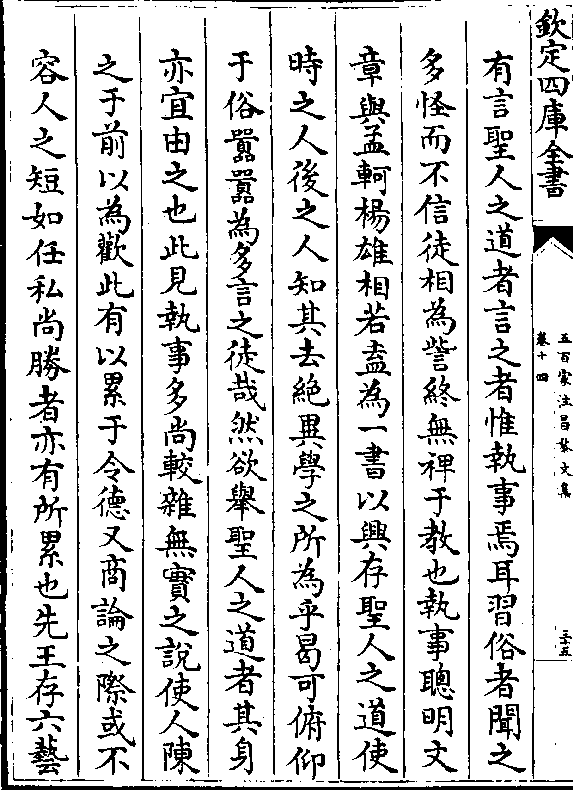 欽定四庫全書
五百家注昌黎文集
卷十四
三十五
有言聖人之道者言之者惟執事焉耳習俗者聞之
多怪而不信徒相為訾終無裨于教也執事聰明文
章與孟軻楊雄相若盍為一書以興存聖人之道使
時之人後之人知其去絶異學之所為乎曷可俯仰
于俗囂囂為多言之徒哉然欲舉聖人之道者其身
亦宜由之也此見執事多尚較雜無實之説使人陳
之于前以為歡此有以累于令德又商論之際或不
容人之短如任私尚勝者亦有所累也先王存六藝